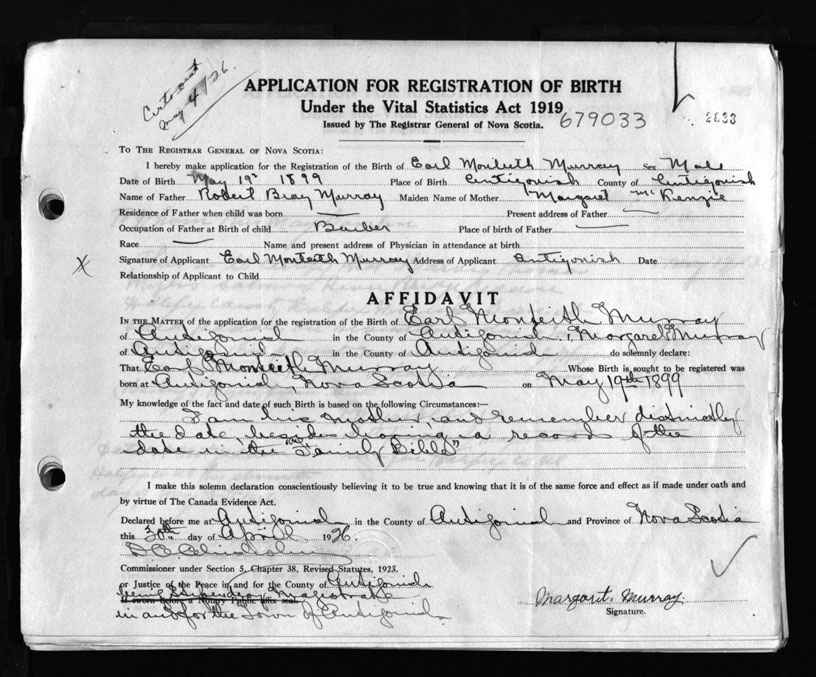 Certs sent
May 4/26.
APPLICATION FOR REGISTRATION OF BIRTH
Under the Vital Statistics Act 1919
Issued by The Registrar General of Nova Scotia. 679033
2033
TO THE REGISTRAR GENERAL OF NOVA SCOTIA:
I hereby make application for the Registration of the Birth of Earl Monteith Murray Sex Male
Date of Birth May 19th 1899 Place of Birth Antigonish County of Antigonish
Name of Father Robert Bray Murray Maiden Name of Mother Margaret McKenzie
Residence of Father when child was born — Present address of Father —
Occupation of Father at Birth of child Barber Place of birth of Father —
Race — Name and present address of Physician in attendance at birth
X Signature of Applicant Earl Monteith Murray Address of Applicant Antigonish Date
Relationship of Applicant to Child
AFFIDAVIT
IN THE MATTER of the application for the registration of the Birth of Earl Monteith Murray
of Antigonish in the County of Antigonish I, Margaret Murray
of Antigonish in the County of Antigonish do solemnly declare:
That Earl Monteith Murray Whose Birth is sought to be registered was
born at Antigonish, Nova Scotia on May 19th 1899
My knowledge of the fact and date of such Birth is based on the following Circumstances:—
I am his mother, and remember distinctly
the date, besides having a record of the
date in the "Family Bible"
I make this solemn declaration conscientiously believing it to be true and knowing that it is of the same force and effect as if made under oath and
by virtue of The Canada Evidence Act.
Declared before me at Antigonish in the County of Antigonish and Province of Nova Scotia
this 30th day of April 1926.
Chisholm
Commissioner under Section 5, Chapter 38, Revised Statutes, 1923.
or Justice of the Peace in and for the County of Antigonish
being Stipendiary Magistrate
If sworn before a Notary Public affix seal.
in and for the Town of Antigonish
Margaret Murray
Signature.